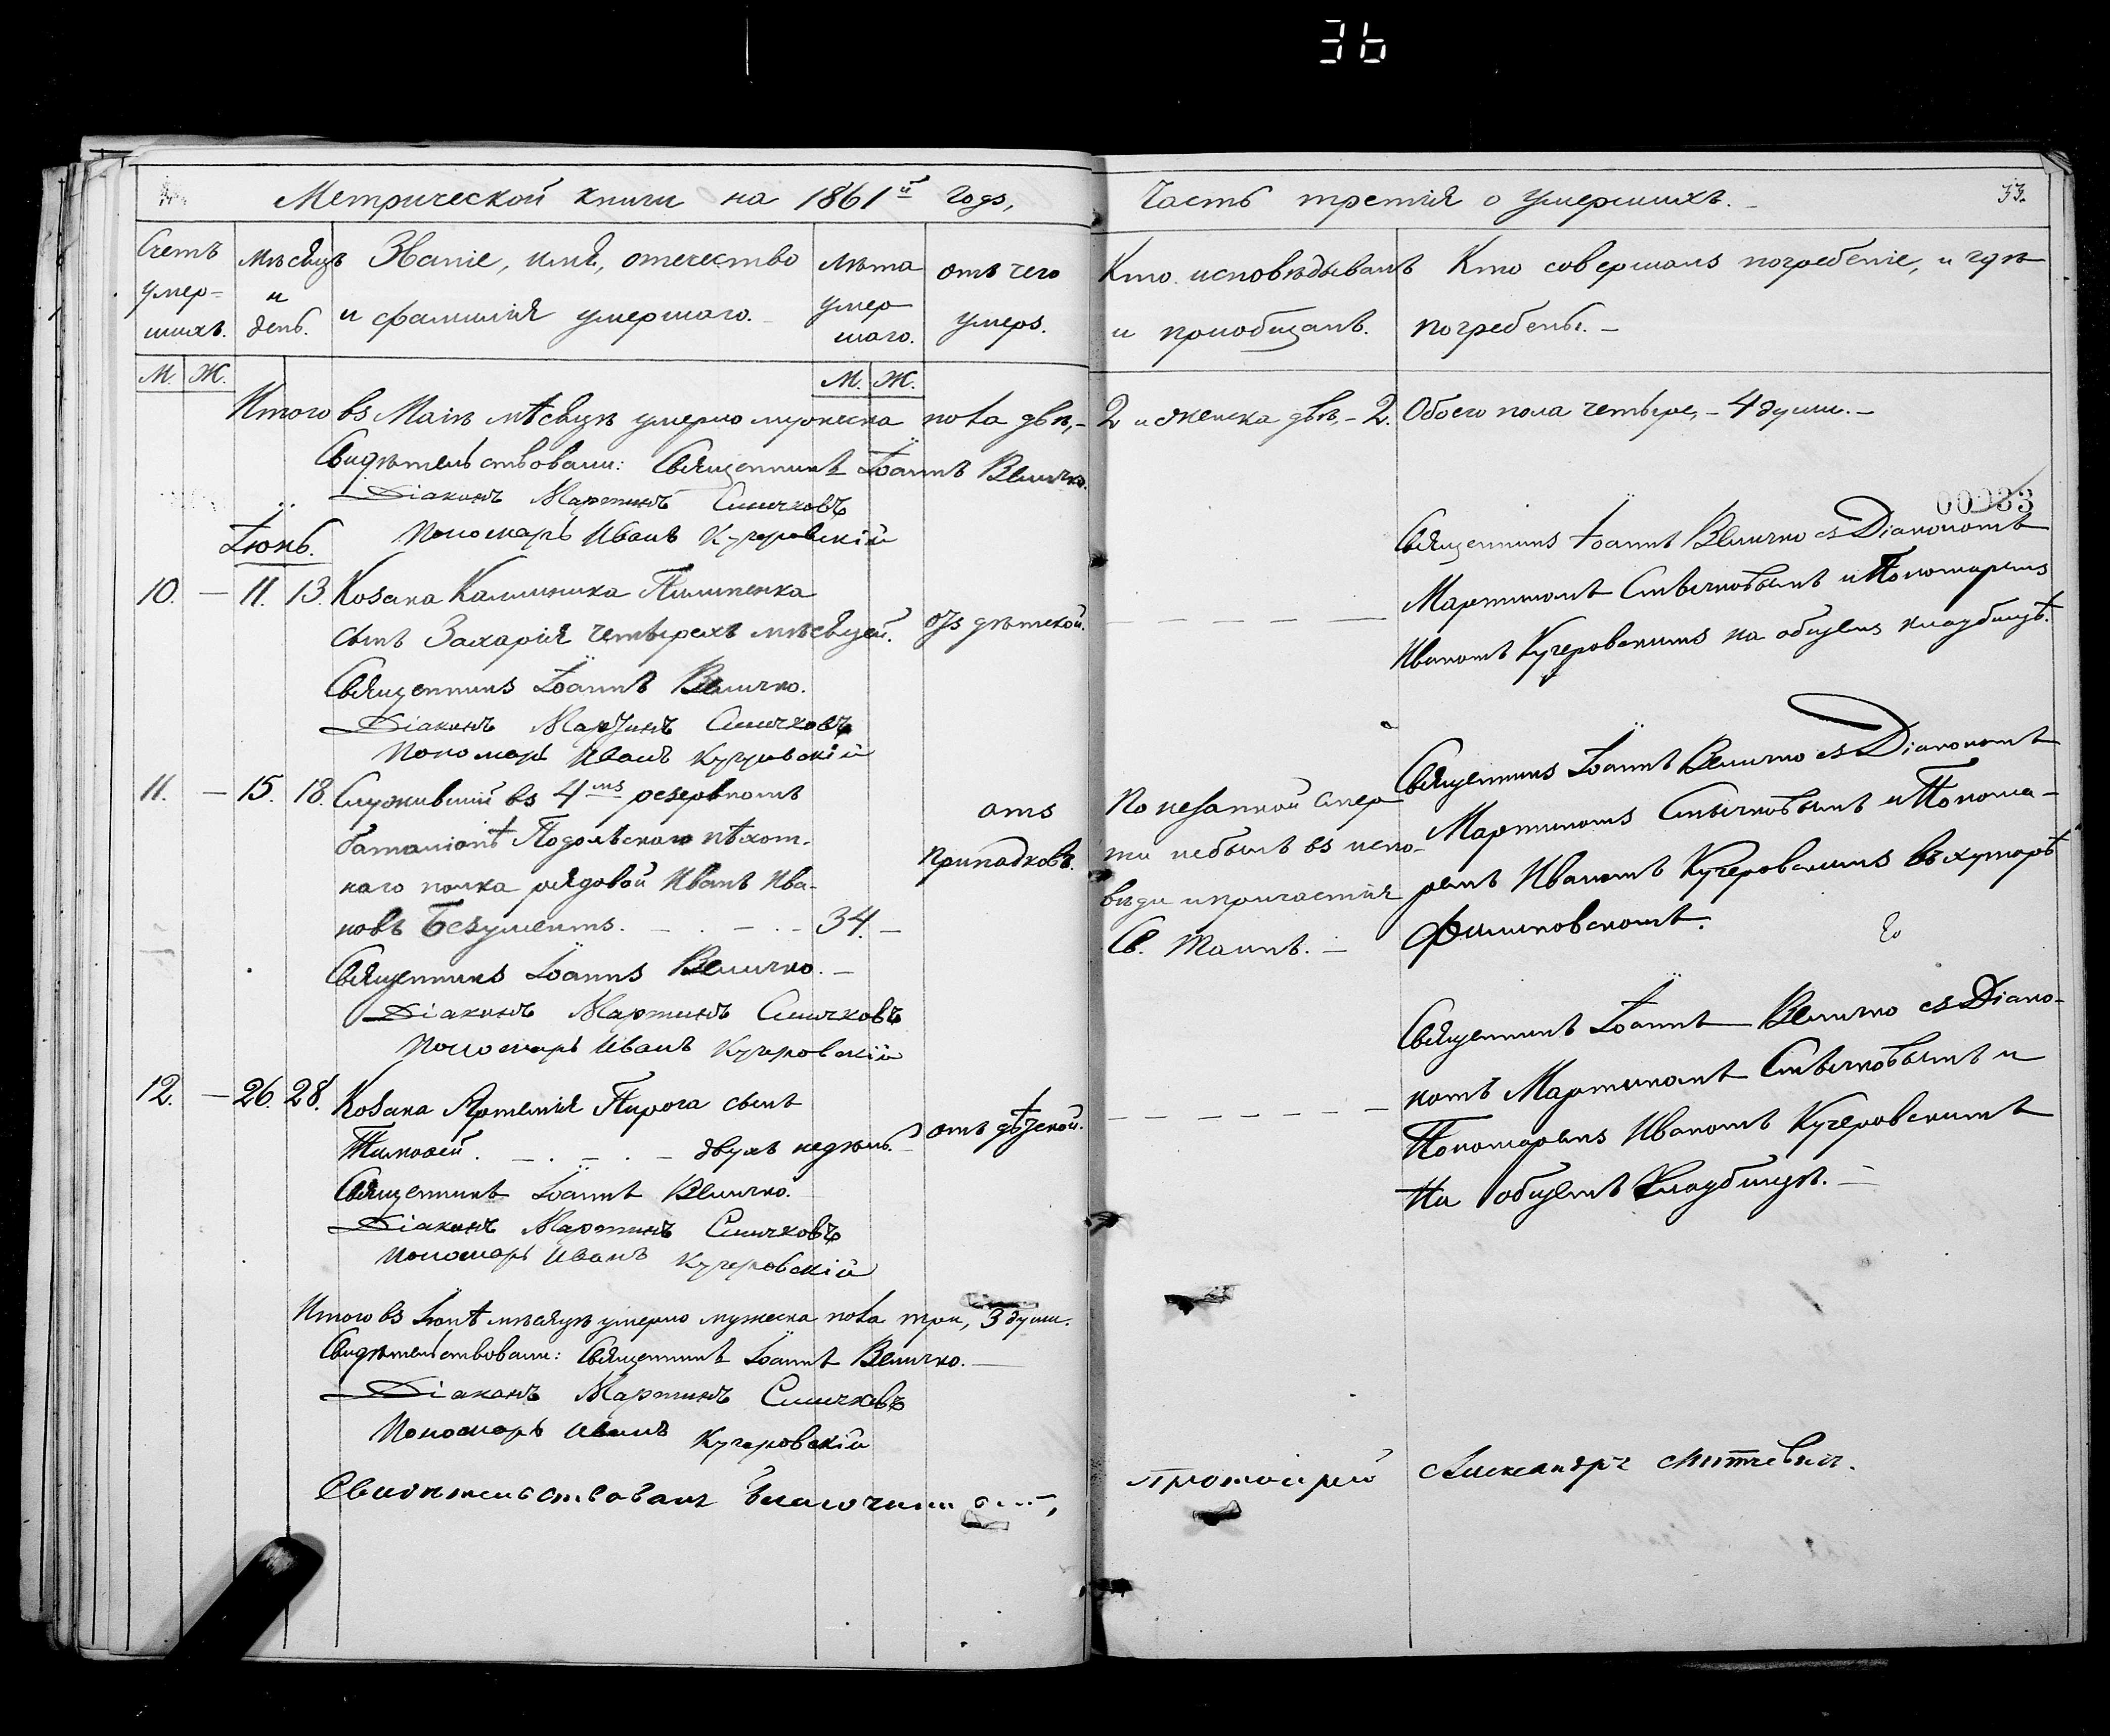 36
Метрической книги на 1861й годъ,
Часть третія о умершихъ.
33.
Счетъ умер=шихъ.
Мѣсяцъ и день.
Званіе, имя, отечество и фамилія умершаго.
Лѣта умершаго.
отъ чего умеръ.
Кто исповѣдывалъ и пріобщалъ.
Кто совершалъ погребеніе, и гдѣ погребены.
М. Ж.
М. Ж.
Итого въ Маіѣ мѣсяцѣ умерло мужеска пола двѣ,- 2 и женска двѣ,- 2. Обоего пола четыре,- 4 души.-
Свидѣтельствовали: Священникъ Іоаннъ Величко.
Діаконъ Мартинъ Смичковъ
Пономарь Иванъ Кучеровскій
00033
Іюнь.
10. — 11. 13. Козака Калиника Пилипенка
сынъ Захарія четырехъ мѣсяцей.
отъ дѣтской.
Священникъ Іоаннъ Величко съ Діакономъ
Мартиномъ Смычковымъ и Пономаремъ
Иваномъ Кучеровскимъ на общемъ кладбищѣ.
Священникъ Іоаннъ Величко.
Діаконъ Мартинъ Смичковъ
Пономарь Иванъ Кучеровскій
11. — 15. 18. Служившій въ 4мъ резервномъ
баталіонѣ Подольскаго пѣхот-
наго полка рядовой Иванъ Ива-
новъ Безуменъ. 34. —
отъ
припадковъ.
По незапной смер
ти небылъ въ испо-
вѣди и причастія
Св. Таинъ. —
Священникъ Іоаннъ Величко съ Діакономъ
Мартиномъ Смычковымъ и Понома-
ремъ Иваномъ Кучеровскимъ въ хуторѣ
Филиповскомъ.
Священникъ Іоаннъ Величко. —
Діаконъ Мартинъ Смичковъ
Пономарь Иванъ Кучеровскій
12. — 26. 28. Козака Артемія Пирога сынъ
Тимофей. двухъ недѣль.
отъ дѣтской.
Священникъ Іоаннъ Величко съ Діако-
номъ Мартиномъ Смычковымъ и
Пономаремъ Иваномъ Кучеровскимъ
На общемъ кладбищѣ. —
Священникъ Іоаннъ Величко.
Діаконъ Мартинъ Смичковъ
Пономарь Иванъ Кучеровскій
Итого въ Іюнѣ мѣсяцѣ умерло мужеска пола три, 3 души.
Свидѣтельствовали: Священникъ Іоаннъ Величко. —
Діаконъ Мартинъ Смичковъ
Пономарь Иванъ Кучеровскій
Свидѣтельствовалъ протоіерей Александръ